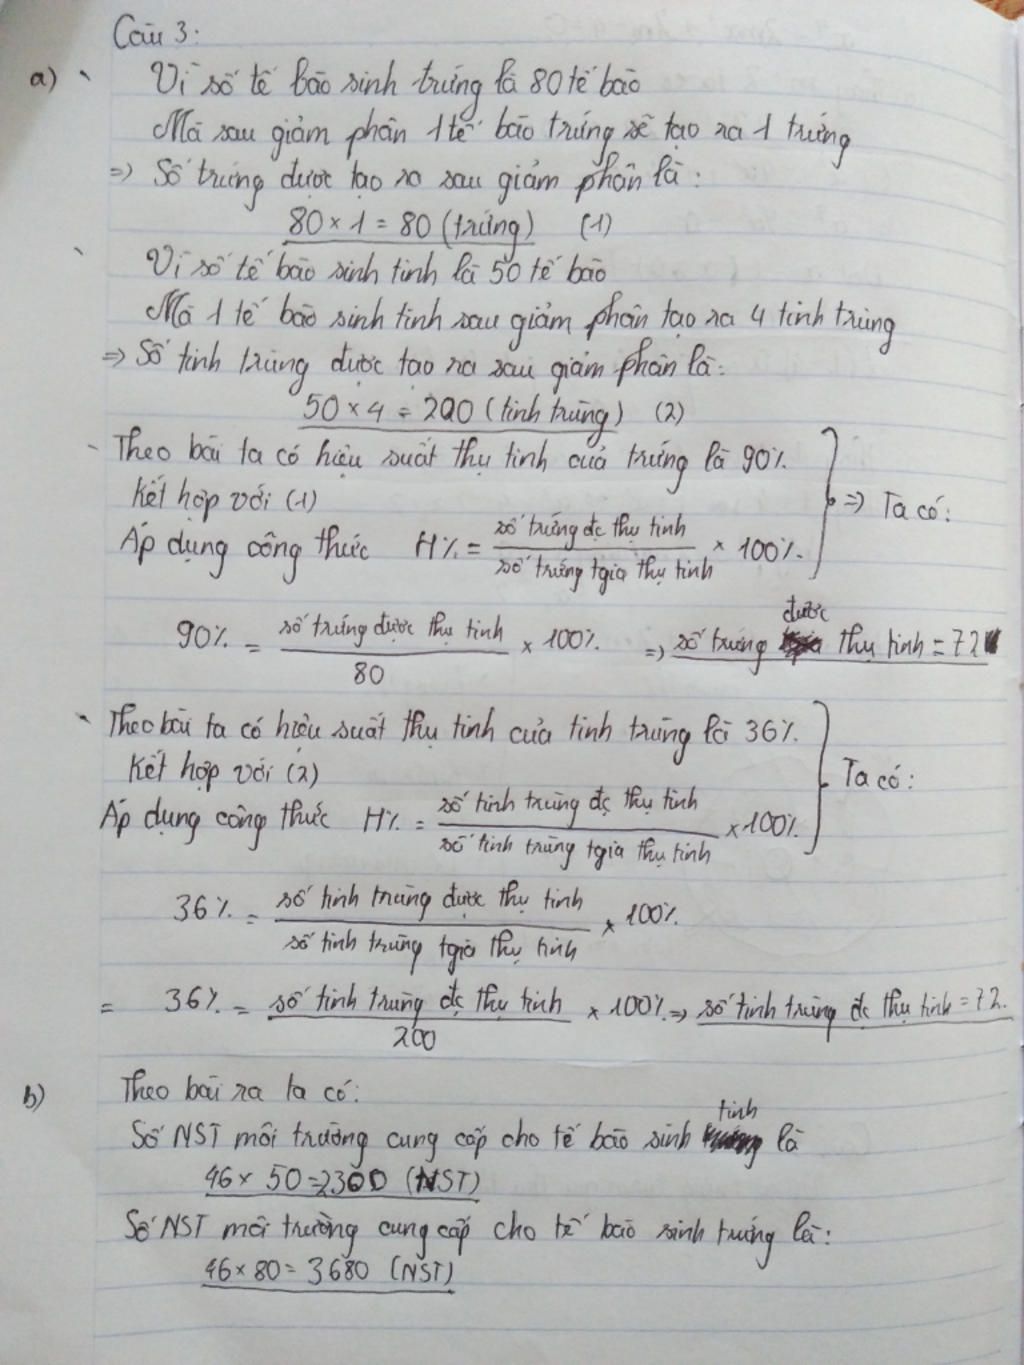 Câu 3:
a) Vì số tế bào sinh trứng là 80 tế bào
Mà sau giảm phân 1 tế bào trứng sẽ tạo ra 1 trứng
=> Số trứng được tạo ra sau giảm phân là:
80 × 1 = 80 (trứng) (1)
Vì số tế bào sinh tinh là 50 tế bào
Mà 1 tế bào sinh tinh sau giảm phân tạo ra 4 tinh trùng
=> Số tinh trùng được tạo ra sau giảm phân là:
50 × 4 = 200 (tinh trùng) (2)
- Theo bài ta có hiệu suất thụ tinh của trứng là 90%.
Kết hợp với (1) => Ta có:
Áp dụng công thức H% = số trứng đc thụ tinh / số trứng tgia thụ tinh × 100%.
90% = số trứng được thụ tinh / 80 × 100%. => số trứng được thụ tinh = 72
Theo bài ta có hiệu suất thụ tinh của tinh trùng là 36%.
Kết hợp với (2) Ta có:
Áp dụng công thức H% = số tinh trùng đc thụ tinh / số tinh trùng tgia thụ tinh × 100%.
36% = số tinh trùng được thụ tinh / số tinh trùng tgia thụ tinh × 100%.
= 36% = số tinh trùng đc thụ tinh / 200 × 100%. => số tinh trùng đc thụ tinh = 72.
b) Theo bài ra ta có:
Số NST môi trường cung cấp cho tế bào sinh tinh là
46 × 50 = 2300 (NST)
Số NST môi trường cung cấp cho tế bào sinh trứng là:
46 × 80 = 3680 (NST)